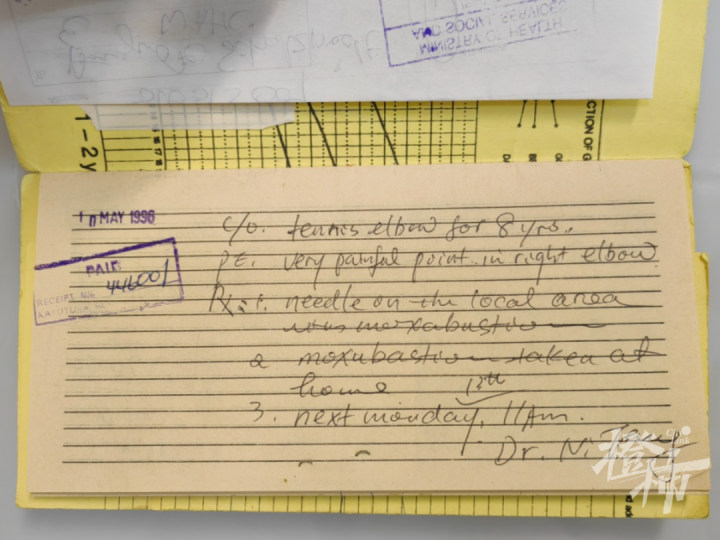 MINISTRY OF HEALTH
AND SOCIAL SERVICES
1-2 y
CTION OF G
10 MAY 1996
PAID
446001
RECEIPT NO.
c/o. tennis elbow for 8 yrs.
P.E. very painful point in right elbow
Rx: 1. needle on the local area
moxabustion
2 moxubastion taken at
home 13th
3. next monday, 11 Am.
Dr. Ni
橙柿